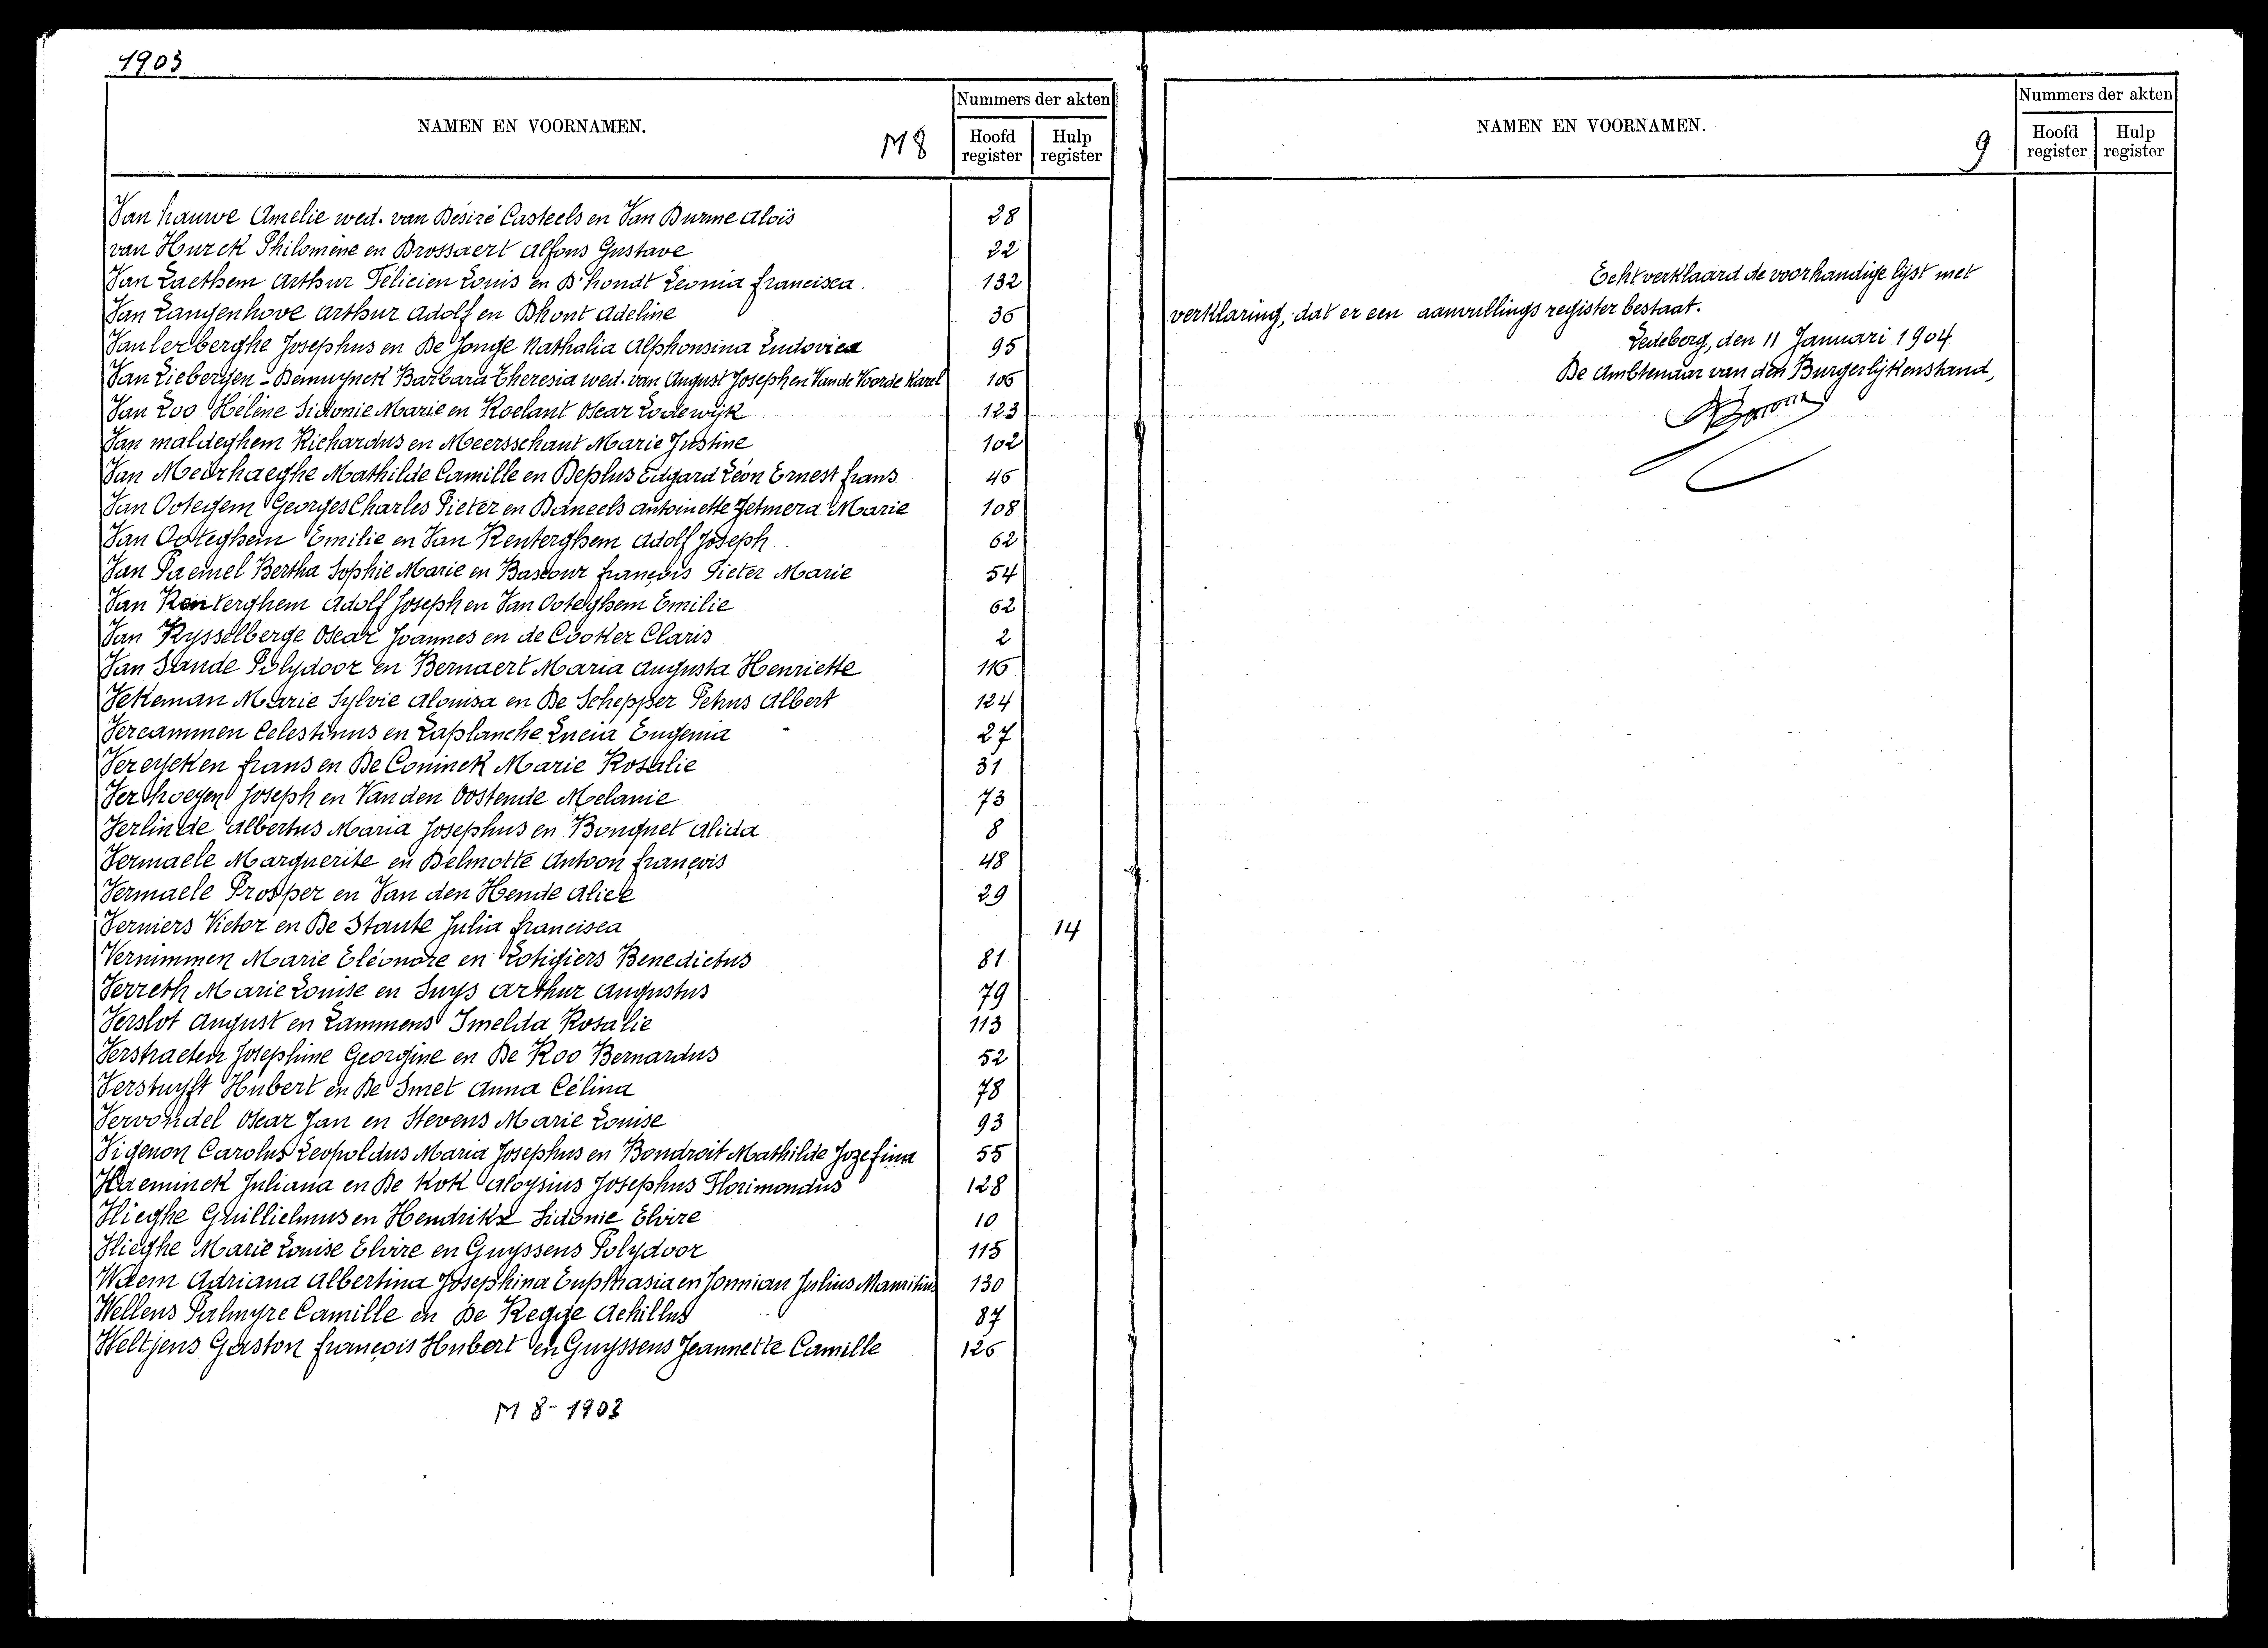 1903
NAMEN EN VOORNAMEN.
M 8
Nummers der akten
Hoofd register
Hulp register
Van hauwe Amelie wed. van Désiré Casteels en Van Durme Aloïs 28
van Hurck Philomène en Brossaert Alfons Gustave 22
Van Laethem Arthur Félicien Louis en D'hondt Leonia Francisca. 132
Van Langenhove Arthur Adolf en Dhont Adeline 36
Vanlerberghe Josephus en De Jonge Nathalia Alphonsina Ludovica 95
Van Liebergen - Demuynck Barbara Theresia wed. van August Joseph en Van de Voorde Karel 106
Van Loo Hélène Sidonie Marie en Roelant Oscar Lodewijk 123
Van maldeghem Richardus en Meersschaut Marie Justine 102
Van Meirhaeghe Mathilde Camille en Deplus Edgard Léon Ernest Frans 46
Van Ootegem Georges Charles Pieter en Daneels Antoinette Zelmera Marie 108
Van Ooteghem Emilie en Van Renterghem Adolf Joseph 62
Van Paemel Bertha Sophie Marie en Bascour François Pieter Marie 54
Van Renterghem Adolf Joseph en Van Ooteghem Emilie 62
Van Rysselberge Oscar Joannes en de Cooker Claris 2
Van Sande Polydoor en Bernaert Maria Augusta Henriette 116
Vekeman Marie Sylvie Alouisa en De Schepper Petrus Albert 124
Vercammen Celestinus en Laplanche Lucia Eugenia 27
Vereycken Frans en De Coninck Marie Rosalie 31
Verhoeyen Joseph en Vanden Oostende Melanie 73
Verlinde Albertus Maria Josephus en Bouquet Alida 8
Vermaele Marguerite en Delmotte Antoon François 48
Vermaele Prosper en Van den Hende Alice 29
Verniers Victor en De Staute Julia Francisca 14
Vernimmen Marie Eléonore en Lotigiers Benedictus 81
Verreth Marie Louise en Suys Arthur Augustus 79
Verslot August en Lammens Imelda Rosalie 113
Verstraeten Josephine Georgine en De Roo Bernardus 52
Verstuyft Hubert en De Smet Anna Célina 78
Vervondel Oscar Jan en Stevens Marie Louise 93
Vigenon Carolus Leopoldus Maria Josephus en Bondroit Mathilde Jozefina 55
Vlaeminck Juliana en De Kok Aloysius Josephus Florimondus 128
Vlieghe Ghillielmus en Hendrikx Sidonie Elvire 10
Vlieghe Marie Louise Elvire en Guyssens Polydoor 115
Waem Adriana Albertina Josephina Euphrasia en Jonniau Julius Mauritius 130
Wellens Palmyre Camille en De Regge Achillus 87
Weltjens Gaston François Hubert en Guyssens Jeannette Camille 126
M 8 - 1903
NAMEN EN VOORNAMEN.
9
Nummers der akten
Hoofd register
Hulp register
Echt verklaard de voorhandige lijst met
verklaring, dat er een aanvullings register bestaat.
Ledeberg, den 11 Januari 1904
De Ambtenaar van den Burgerlijkenstand,